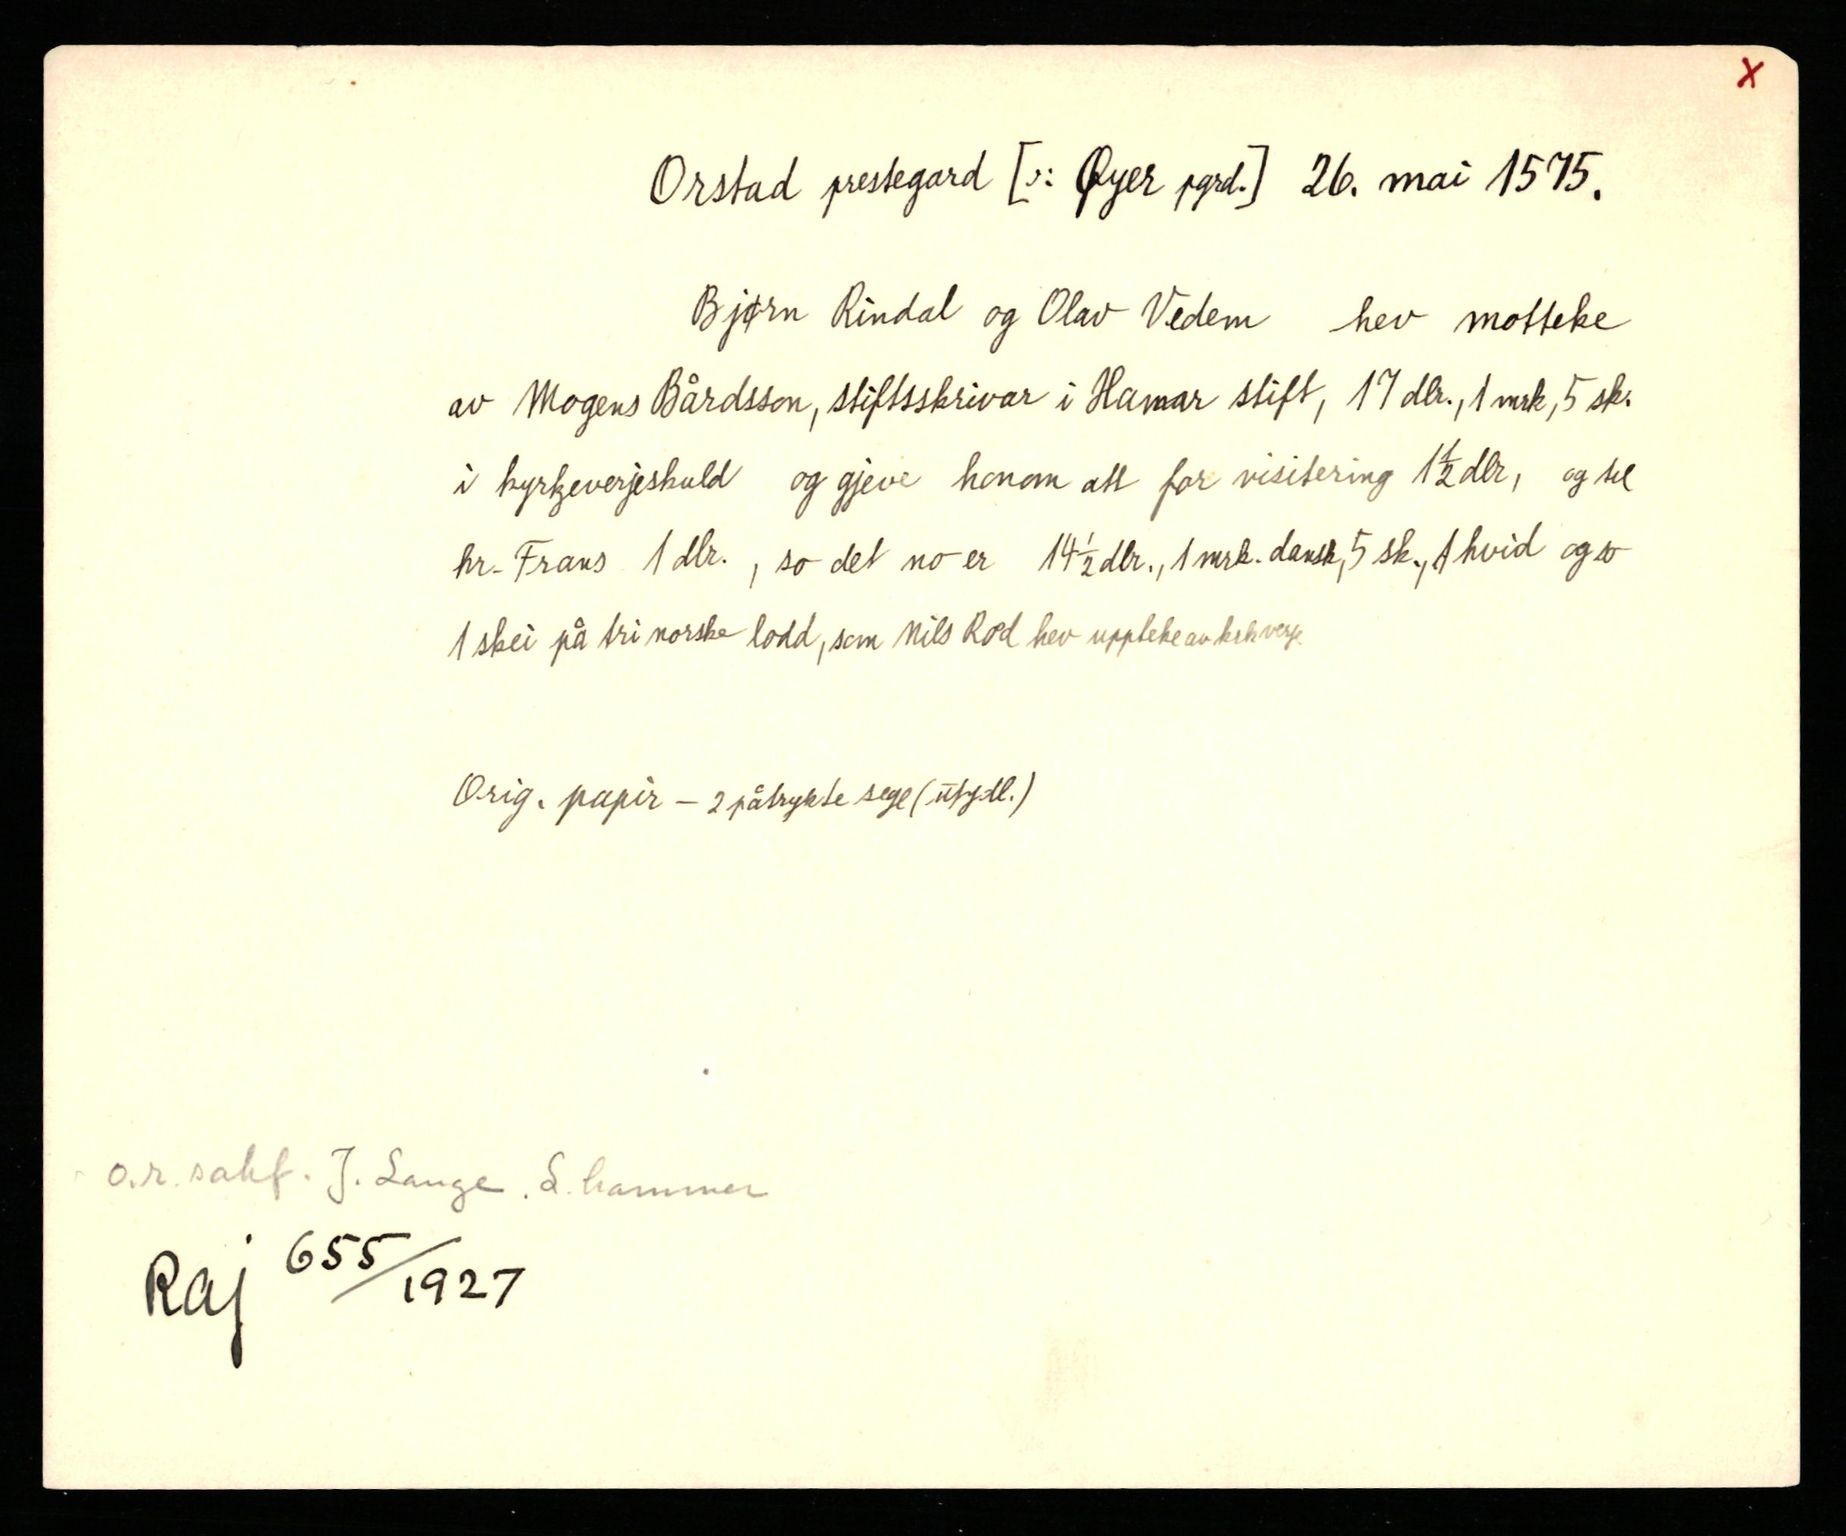 x
Orstad prestegard [ɔ: Øyer pgrd.] 26. mai 1575.
Bjørn Rindal og Olav Vedem hev motteke
av Mogens Bårdsson, stiftsskrivar i Hamar stift, 17 dlr., 1 mrk, 5 sk.
i kyrkjeverjeskuld og gjeve honom att for visitering 1½ dlr, og til
hr. Frans 1 dlr., so det no er 14½ dlr., 1 mrk. dansk, 5 sk., 1 hvid og so
1 skei på tri norske lodd, som Nils Rød hev uppteke av
Orig. papir - 2 påtrykte segl (utydl.)
o.r. sakf. J. Lange. L.hammer
Raj 655/1927